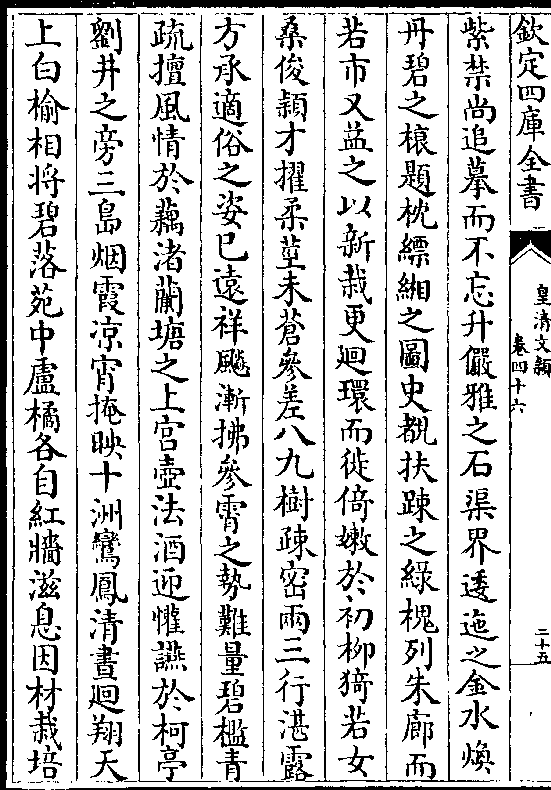 欽定四庫全書
皇清文穎
卷四十六
二十五
紫禁尚追摹而不忘升儼雅之石渠界逶迤之金水煥
丹碧之榱題枕縹緗之圖史覩扶踈之綠槐列朱廊而
若市又益之以新栽更迴環而徙倚嫩於初柳猗若女
桑俊穎才擢柔荑未蒼參差八九樹疎密兩三行湛露
方承適俗之姿已遠祥飈漸拂參霄之勢難量碧檻青
疏擅風情於藕渚蘭塘之上宫壺法酒迎懽讌於柯亭
劉井之旁三島烟霞凉宵掩映十洲鸞鳳清晝迴翔天
上白榆相將碧落苑中盧橘各自紅牆滋息因材栽培